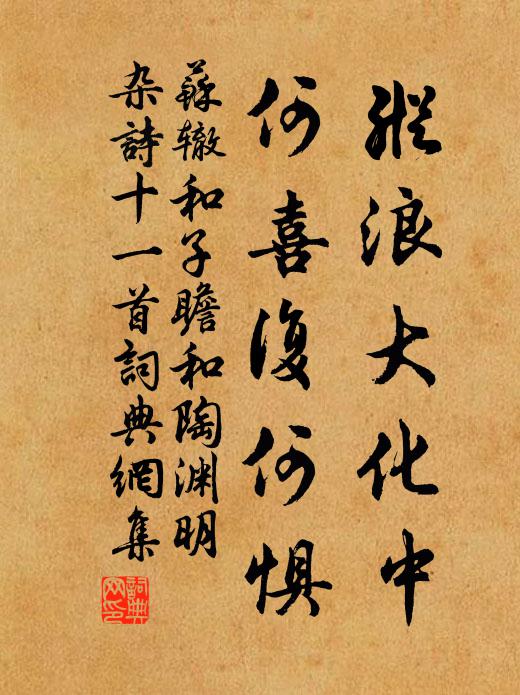 縱浪大化中
何喜復何惧
蘇辙和子瞻和陶渊明
杂詩十一首詞典網集
詞典
网印